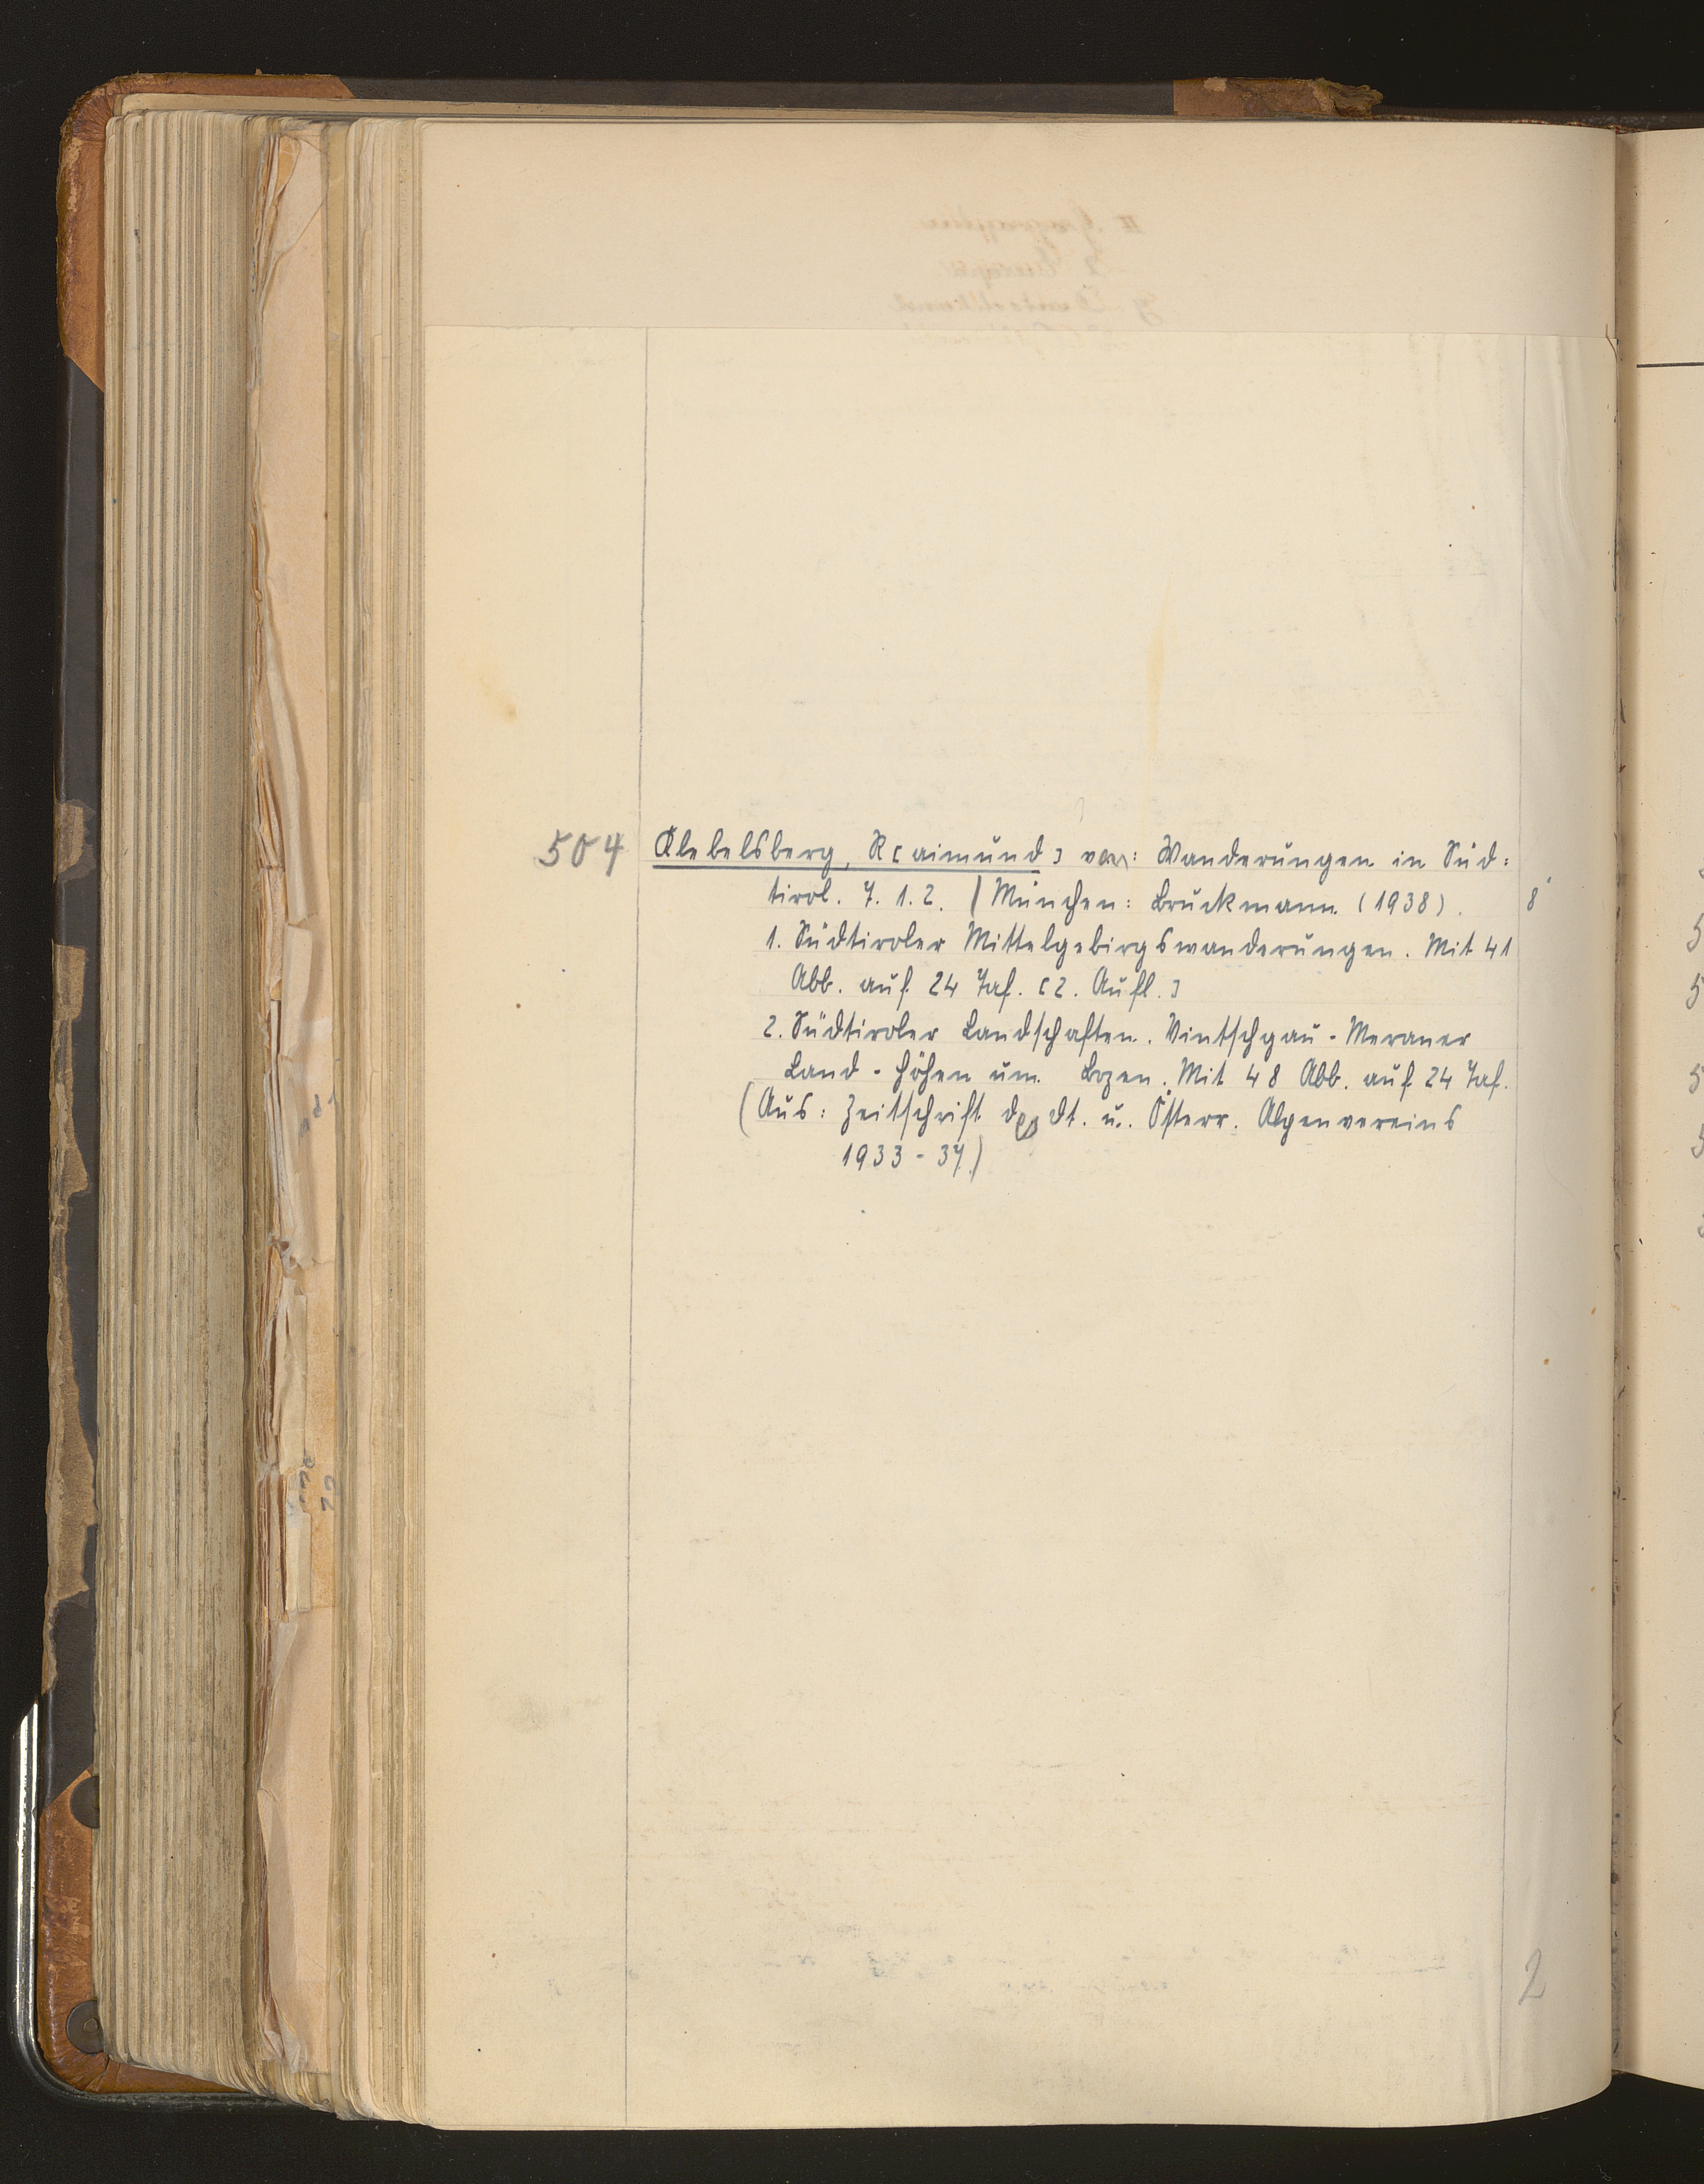 504 Klebelsberg, R[aimund] von: Wanderungen in Süd=
tirol. T. 1. 2. (München: Bruckmann (1938). 8°
1. Südtiroler Mittelgebirgswanderungen. Mit 41
Abb. auf 24 Taf. [2. Aufl.]
2. Südtiroler Landschaften. Vintschgau - Meraner
Land - Höhen um Bozen. Mit 48 Abb. auf 24 Taf.
(Aus: Zeitschrift des dt. u. Österr. Alpenvereins
1933-37.)
2